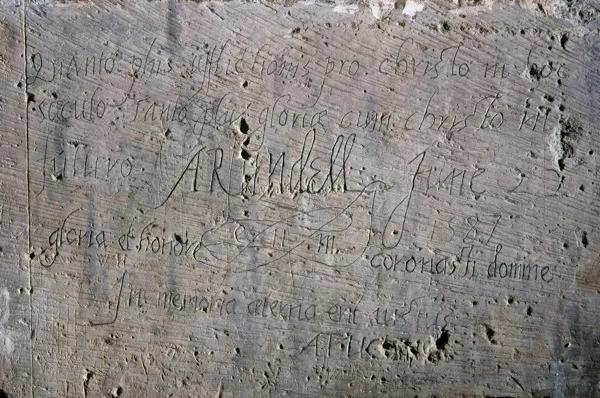 Quanto plus afflictionis pro christo in hoc
saeculo, Tanto plus gloriae cum christo in
futuro. ARUndell June 22
1587
gloria et honore eum coronasti domine
In memoria aeterna erit iustus